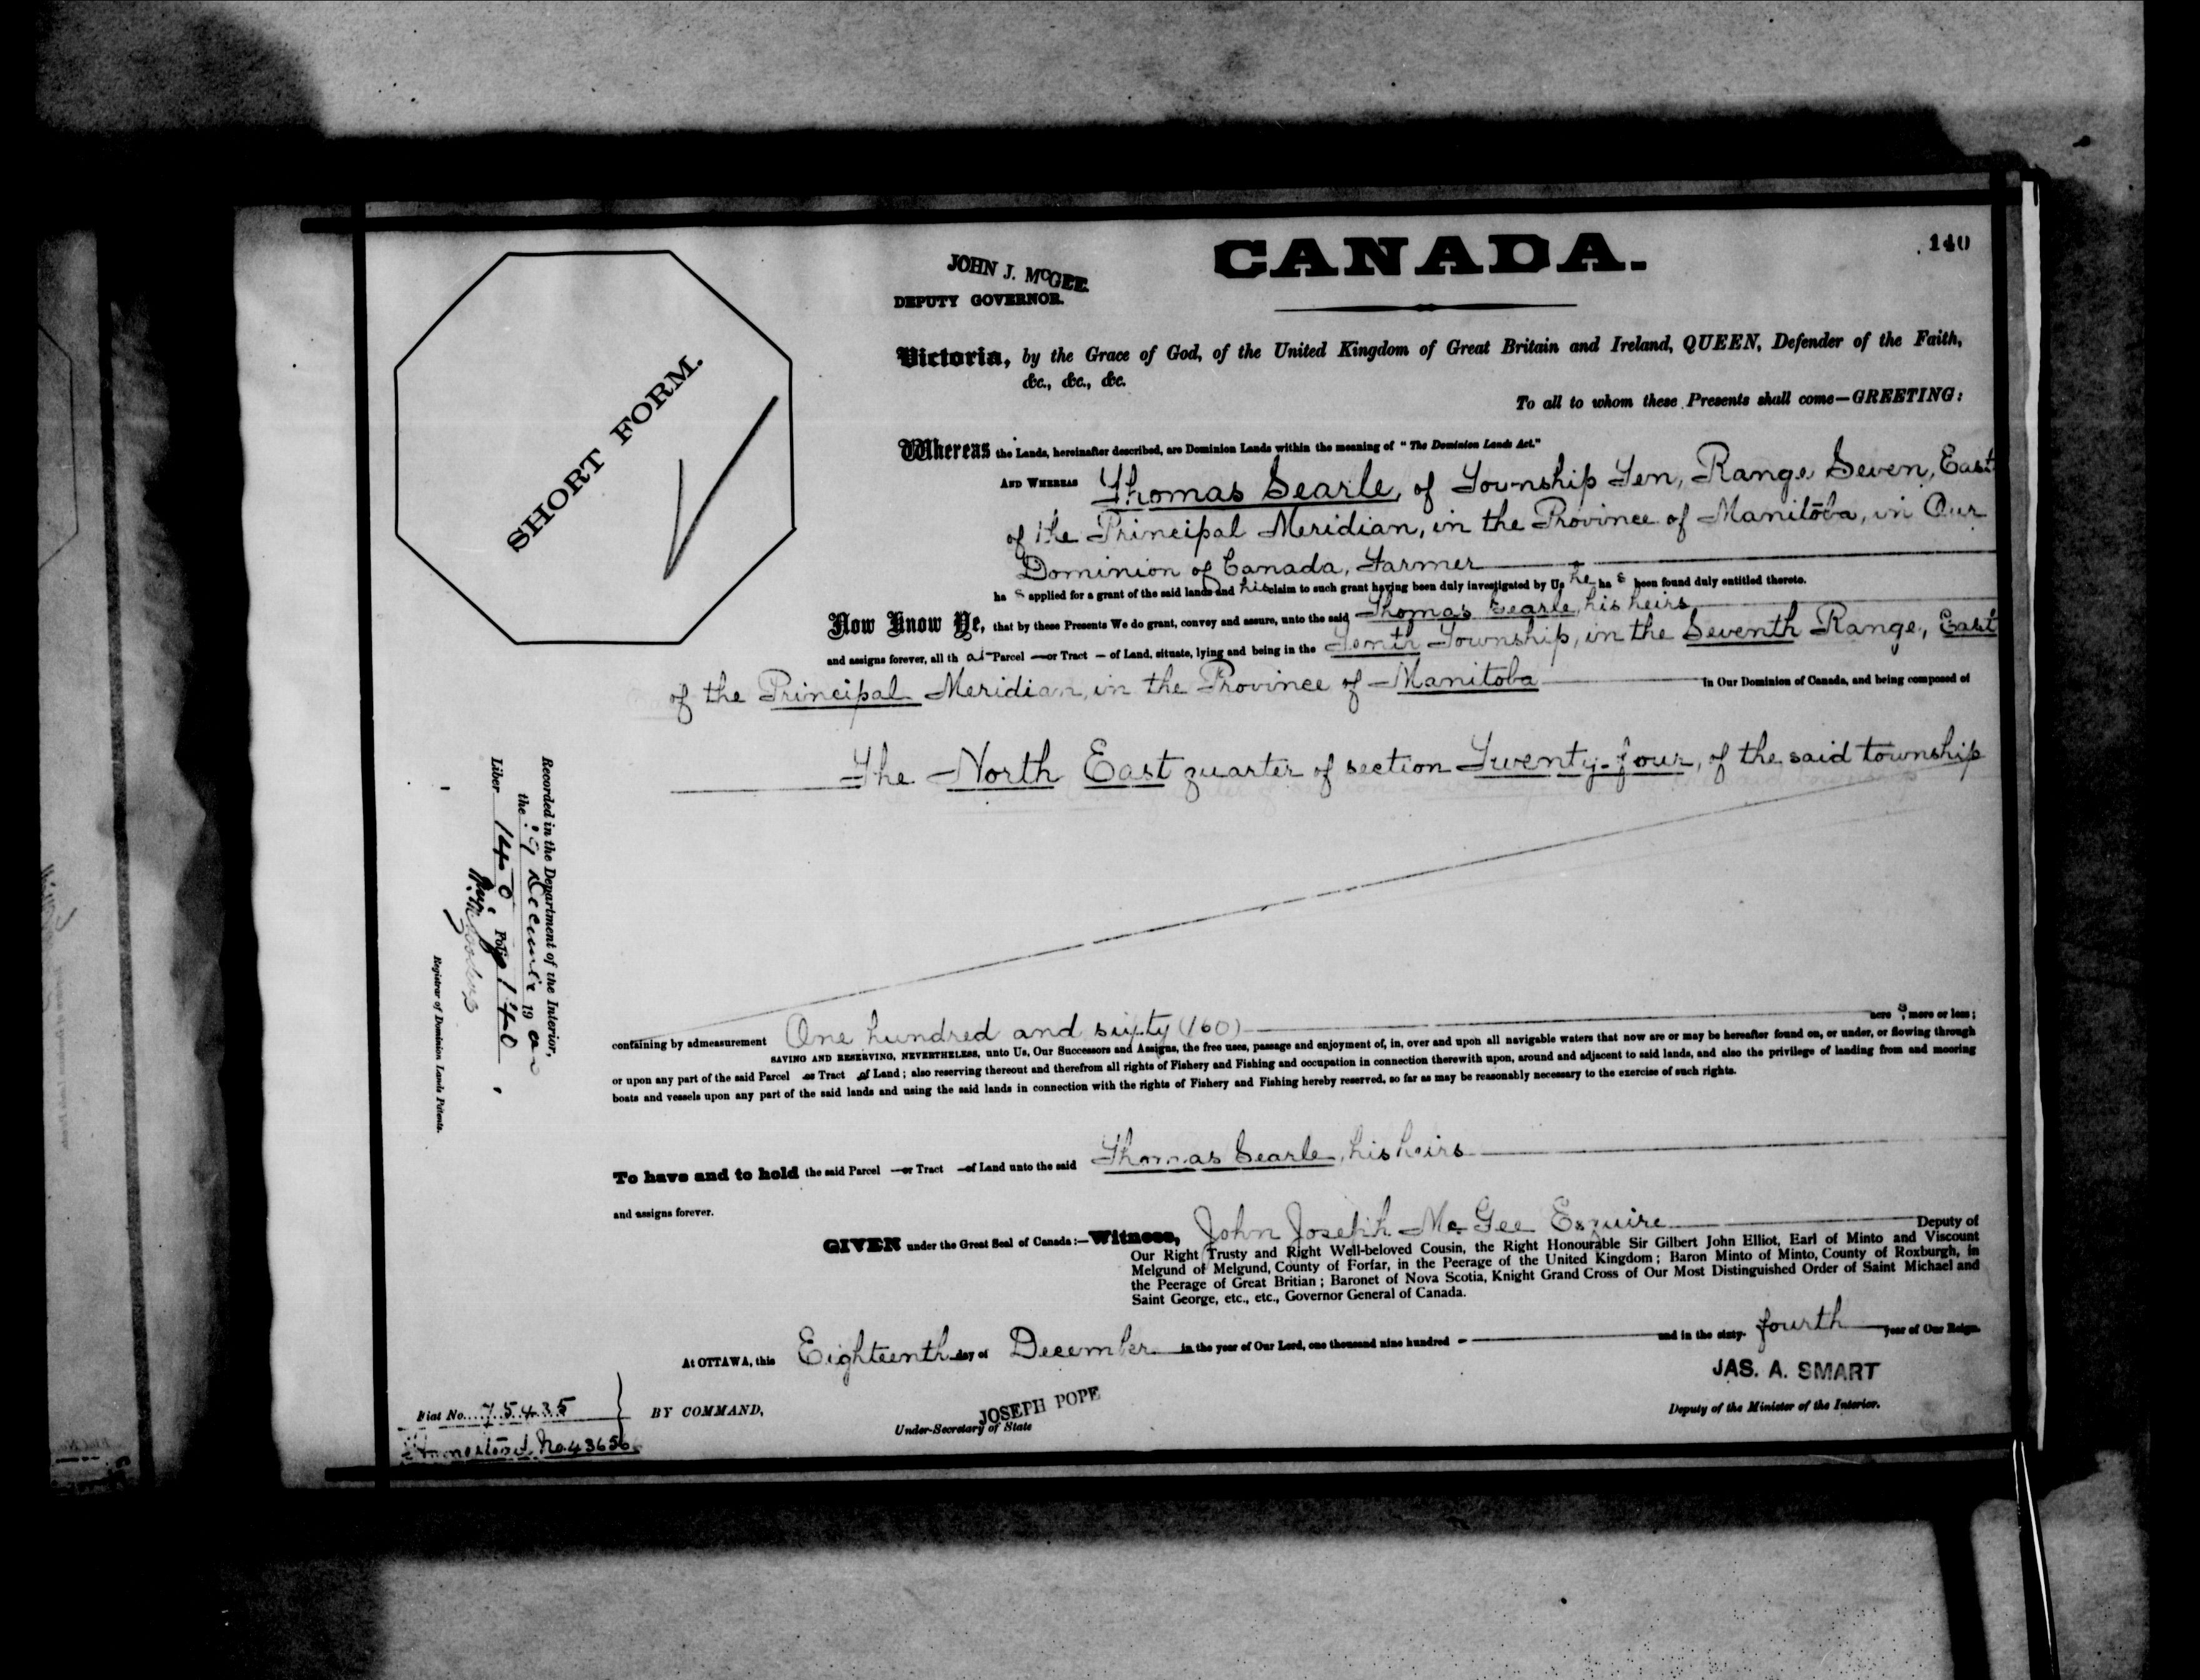 140
CANADA.
JOHN J. McGEE.
DEPUTY GOVERNOR.
SHORT FORM.
Victoria, by the Grace of God, of the United Kingdom of Great Britain and Ireland, QUEEN, Defender of the Faith,
&c., &c., &c.
To all to whom these Presents shall come—GREETING:
Whereas the Lands, hereinafter described, are Dominion Lands within the meaning of "The Dominion Lands Act."
AND WHEREAS Thomas Searle, of Township Ten, Range Seven, East
of the Principal Meridian, in the Province of Manitoba, in Our
Dominion of Canada, Farmer
ha s applied for a grant of the said lands and his claim to such grant having been duly investigated by Us he ha s been found duly entitled thereto.
Now Know Ye, that by these Presents We do grant, convey and assure, unto the said Thomas Searle, his heirs
and assigns forever, all th at Parcel or Tract of Land, situate, lying and being in the Tenth Township, in the Seventh Range, East
of the Principal Meridian, in the Province of Manitoba In Our Dominion of Canada, and being composed of
The North East quarter of section Twenty-four, of the said township
containing by admeasurement One hundred and sixty (160) acre s, more or less;
SAVING AND RESERVING, NEVERTHELESS, unto Us, Our Successors and Assigns, the free uses, passage and enjoyment of, in, over and upon all navigable waters that now are or may be hereafter found on, or under, or flowing through
or upon any part of the said Parcel or Tract of Land; also reserving thereout and therefrom all rights of Fishery and Fishing and occupation in connection therewith upon, around and adjacent to said lands, and also the privilege of landing from and mooring
boats and vessels upon any part of the said lands and using the said lands in connection with the rights of Fishery and Fishing hereby reserved, so far as may be reasonably necessary to the exercise of such rights.
To have and to hold the said Parcel or Tract of Land unto the said Thomas Searle, his heirs
and assigns forever.
GIVEN under the Great Seal of Canada:—Witness, John Joseph McGee Esquire Deputy of
Our Right Trusty and Right Well-beloved Cousin, the Right Honourable Sir Gilbert John Elliot, Earl of Minto and Viscount
Melgund of Melgund, County of Forfar, in the Peerage of the United Kingdom; Baron Minto of Minto, County of Roxburgh, in
the Peerage of Great Britian; Baronet of Nova Scotia, Knight Grand Cross of Our Most Distinguished Order of Saint Michael and
Saint George, etc., etc., Governor General of Canada.
At OTTAWA, this Eighteenth day of December in the year of Our Lord, one thousand nine hundred and in the sixty- fourth year of Our Reign.
JAS. A. SMART
Deputy of the Minister of the Interior.
BY COMMAND,
JOSEPH POPE
Under-Secretary of State
Fiat No. 75435
Homestead No. 43656
Recorded in the Department of the Interior,
the 19 December 1900
Liber 140 Folio 140
Registrar of Dominion Lands Patents.